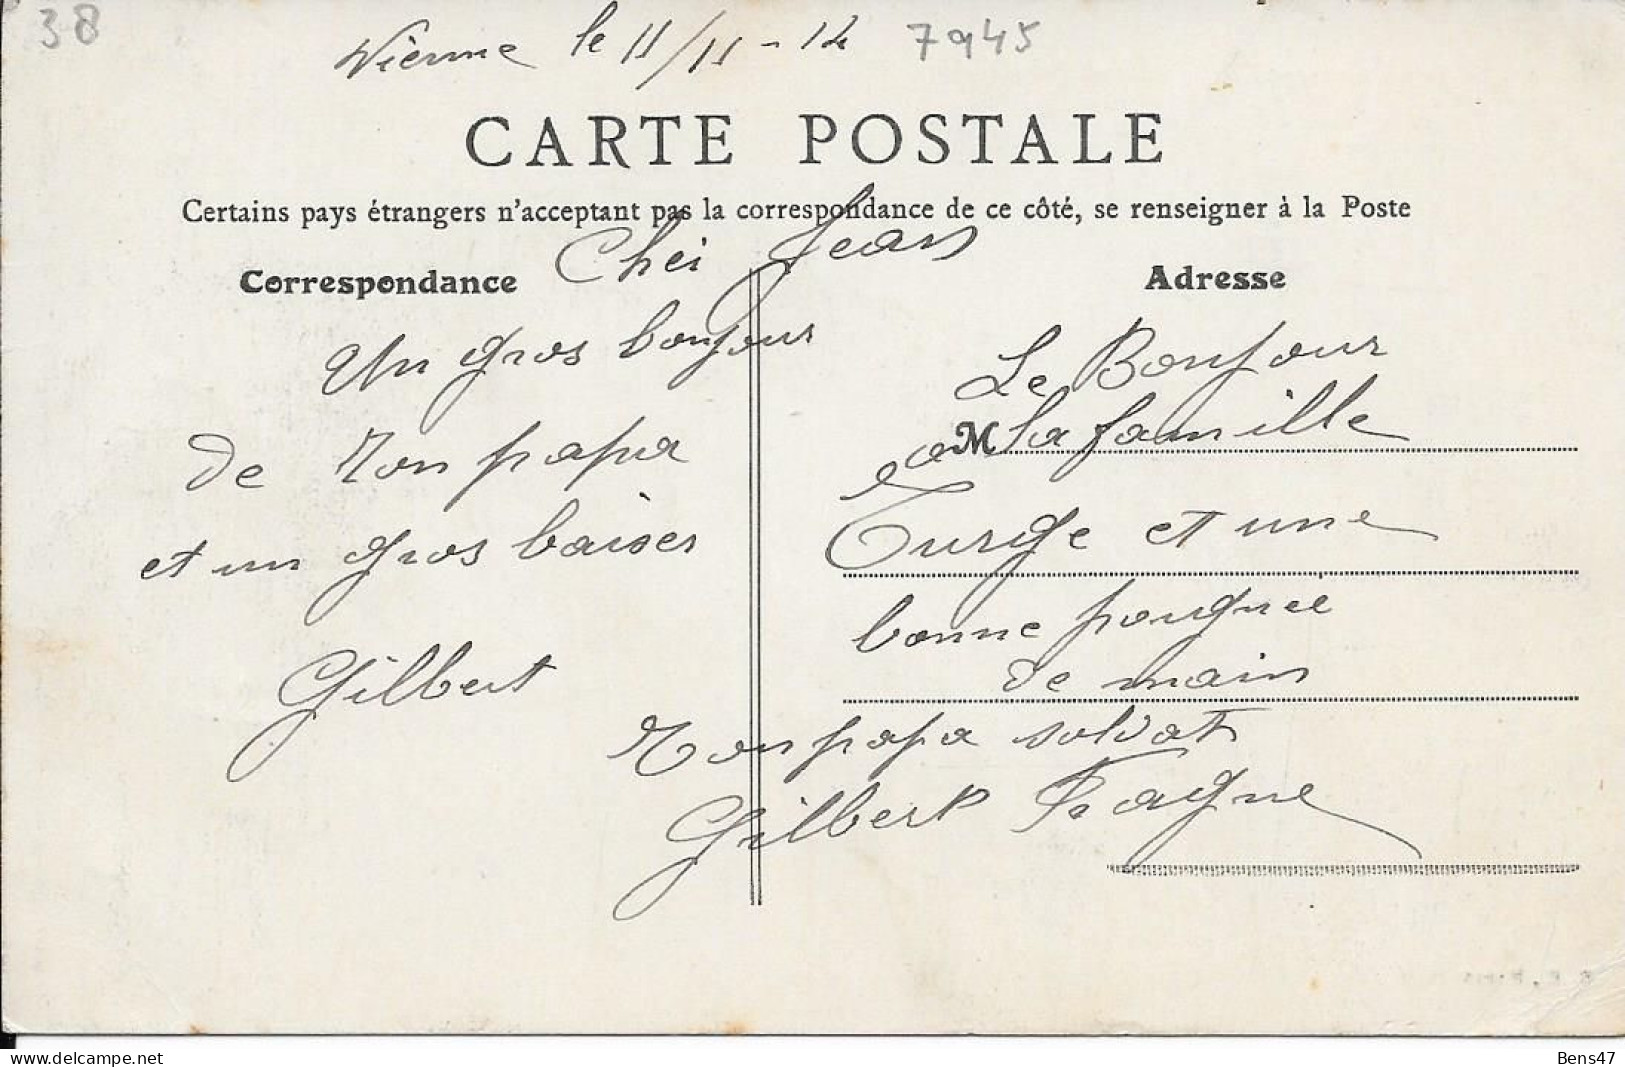 38
Vienne le 11/11-12 7945
CARTE POSTALE
Certains pays étrangers n'acceptant pas la correspondance de ce côté, se renseigner à la Poste
Correspondance
Cher Jean
Un gros bonjour
de ton papa
et un gros baiser
Gilbert
Adresse
Le Bonjour
a M la famille
Turge et une
bonne poignee
de main
Ton papa soldat
Gilbert Fagne
Bens47